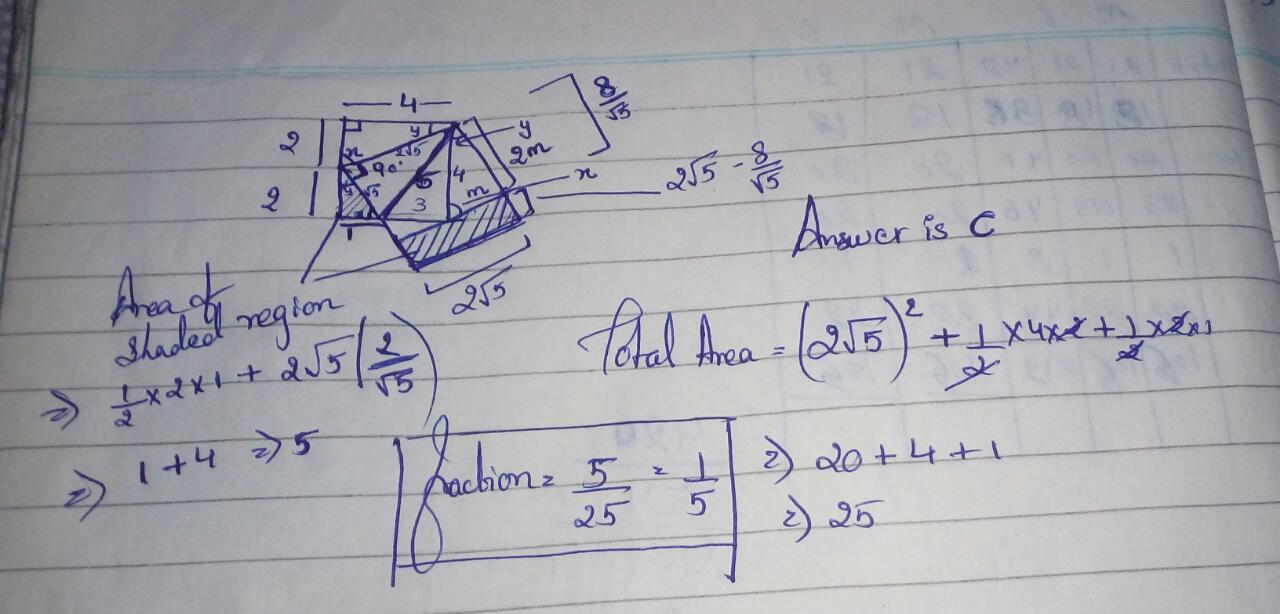 4
8/√5
2
x
y
2√5
90°
y
2m
x
2√5 - 8/√5
2
√5
5
4
3
m
1
2√5
Answer is C
Area of
shaded region
⇒ 1/2 × 2 × 1 + 2√5 (2/√5)
⇒ 1 + 4 ⇒ 5
Total Area = (2√5)² + 1/2 × 4 × 2 + 1/2 × 2 × 1
⇒ 20 + 4 + 1
⇒ 25
fraction = 5/25 = 1/5